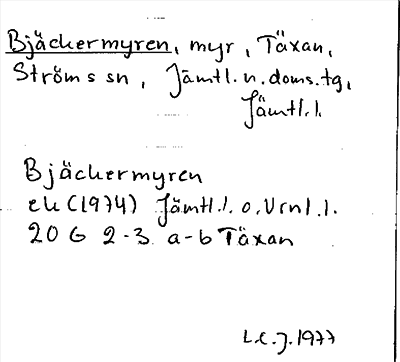 Bjäckermyren, myr, Täxan,
Ströms sn, Jämtl. n. doms. tg,
Jämtl. l.
Bjäckermyren
ek (1974) Jämtl. l. o. Vrnl. l.
20 G 2-3 a-b Täxan
L.E.J. 1977